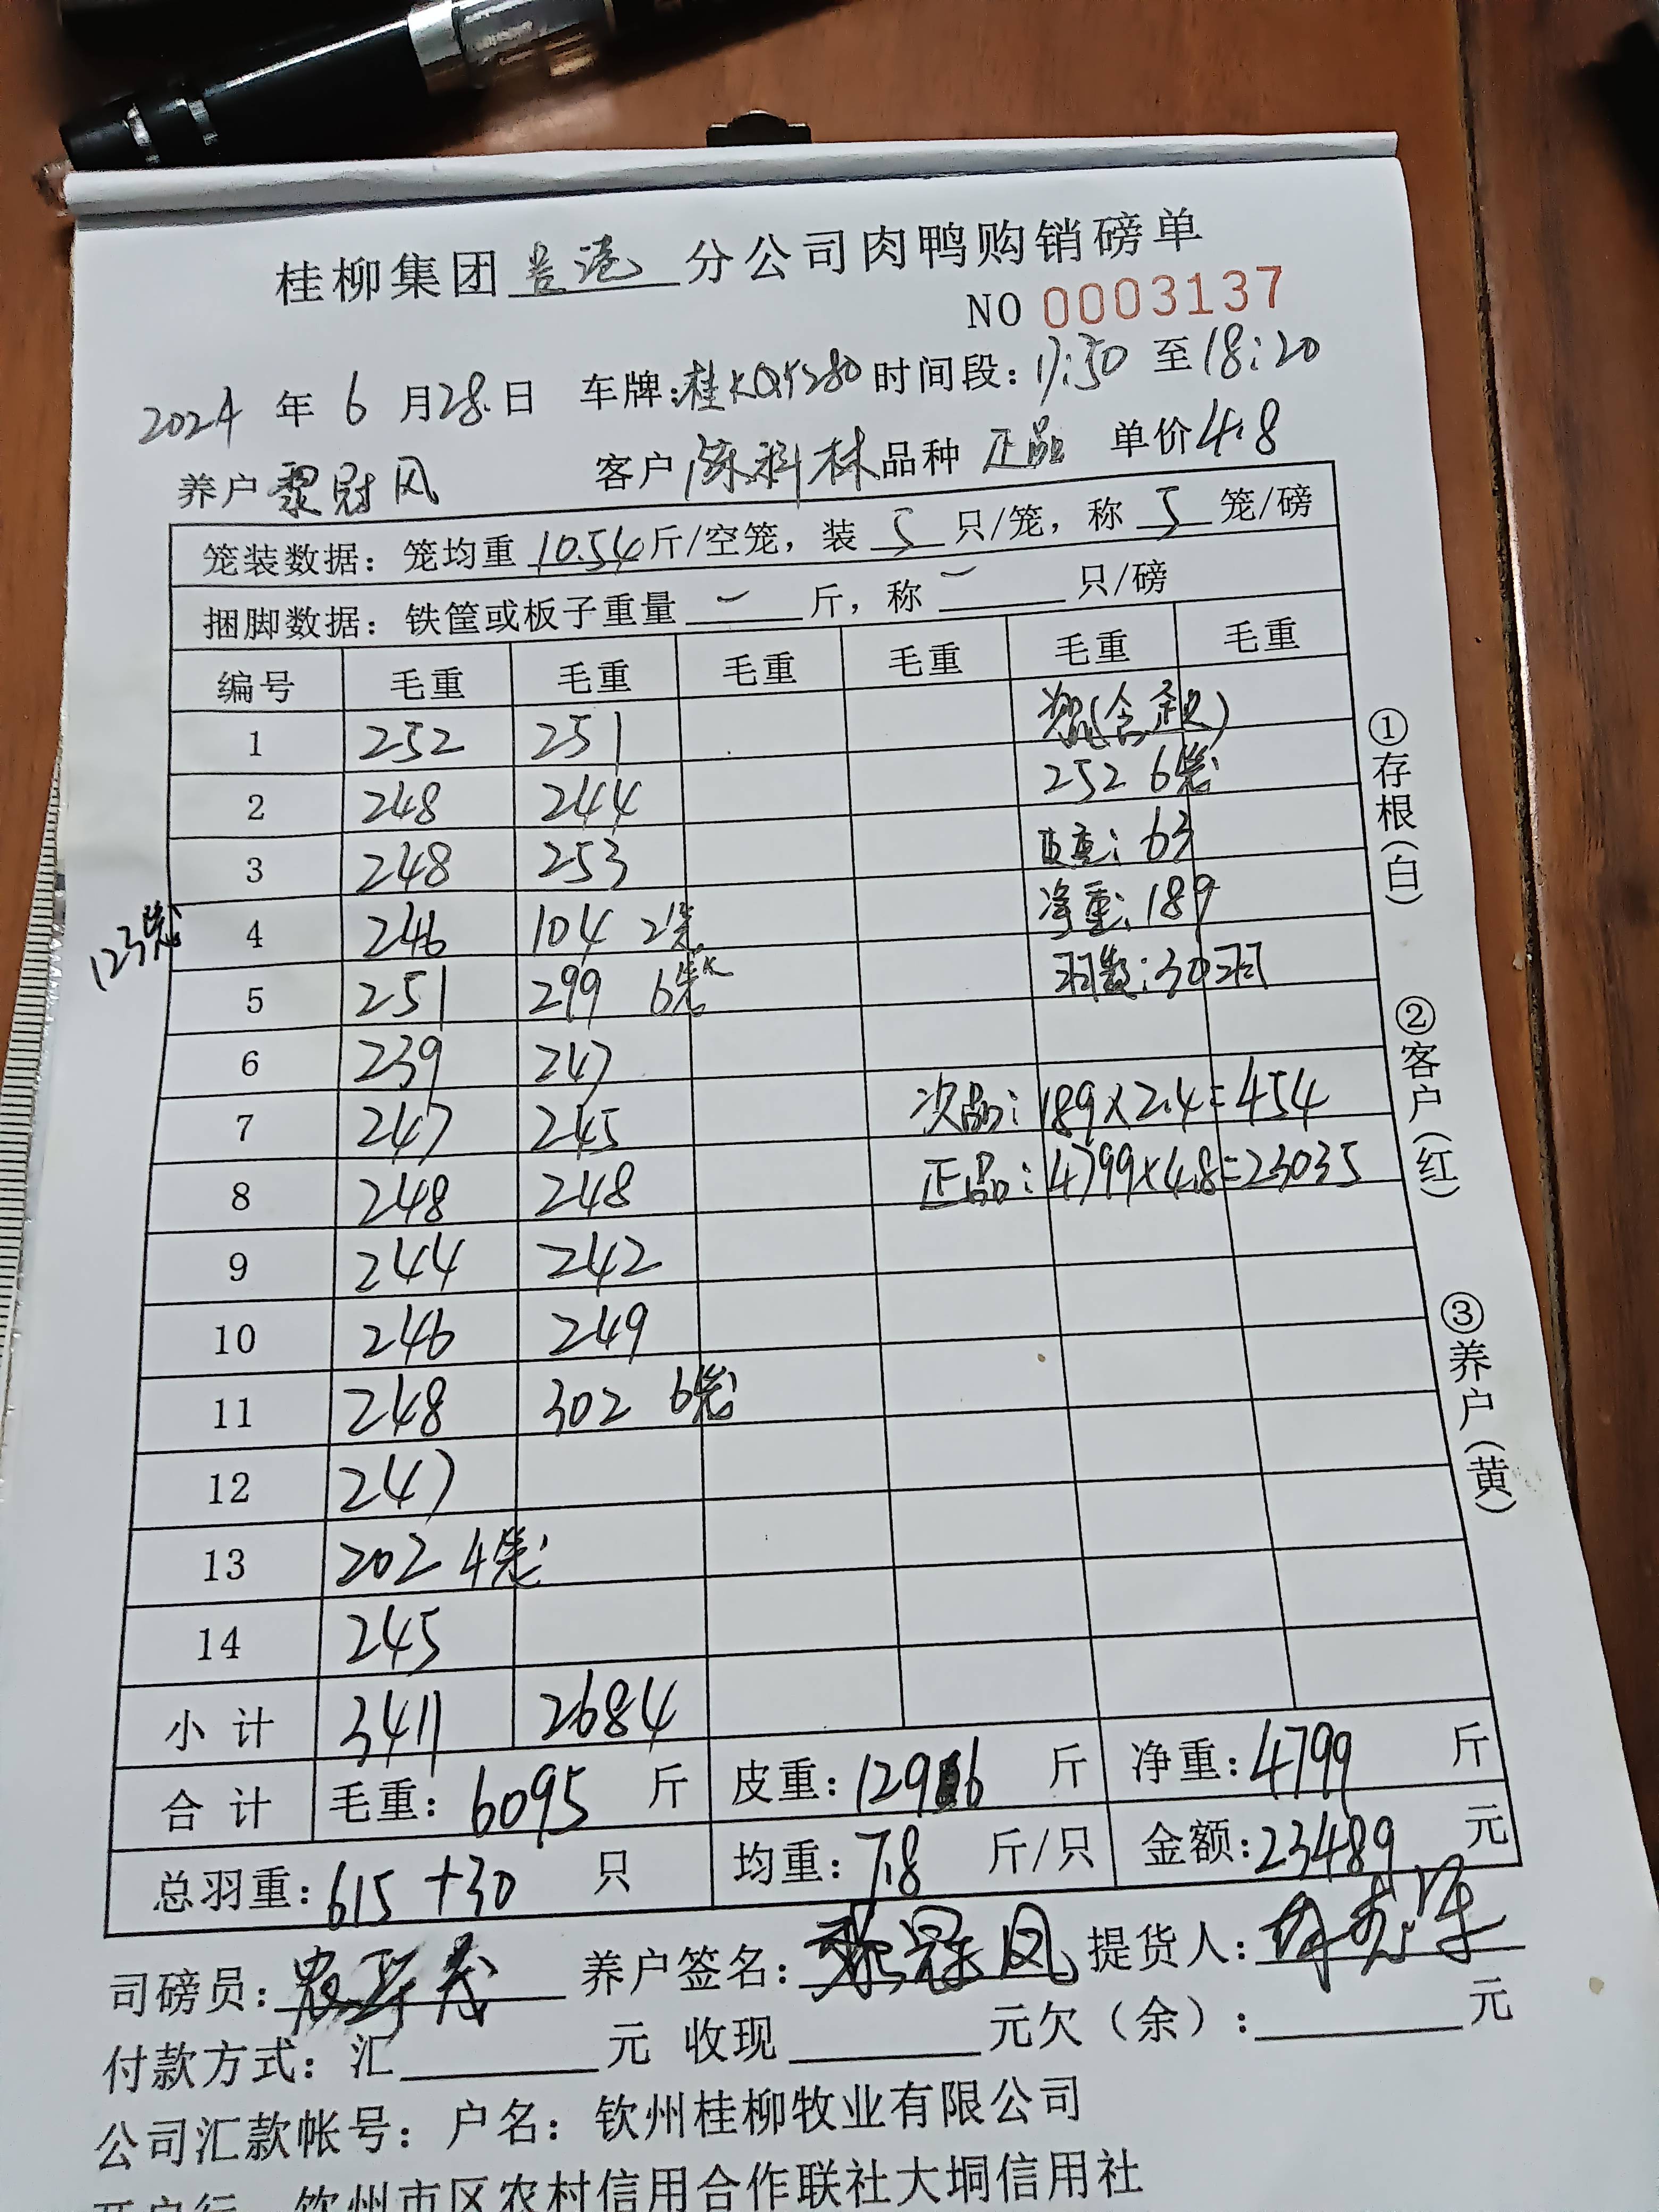 桂柳集团贵港分公司肉鸭购销磅单
NO 0003137
2024 年 6 月 28 日 车牌:桂KQY280 时间段: 17:50 至 18:20
养户 黎冠风 客户 陈科林 品种 正品 单价 4.8
笼装数据: 笼均重 10.54 斤/空笼, 装 5 只/笼, 称 5 笼/磅
捆脚数据: 铁筐或板子重量 — 斤, 称 — 只/磅
编号 毛重 毛重 毛重 毛重 毛重 毛重
1 252 251
2 248 244 252 6笼
3 248 253 皮重: 63
123笼 4 246 104 2笼 净重: 189
5 251 299 6笼 羽数: 30羽
6 239 247
7 247 245 次品: 189×2.4=454
8 248 248 正品: 4799×4.8=23035
9 244 242
10 246 249
11 248 302 6笼
12 247
13 202 4笼
14 245
小计 3411 2684
合计 毛重: 6095 斤 皮重: 1296 斤 净重: 4799 斤
总羽重: 615+30 只 均重: 7.8 斤/只 金额: 23489 元
司磅员: 养户签名: 黎冠风 提货人:
付款方式: 汇 元 收现 元欠(余): 元
公司汇款帐号: 户名: 钦州桂柳牧业有限公司
开户行 钦州市区农村信用合作联社大垌信用社
①存根(白)
②客户(红)
③养户(黄)